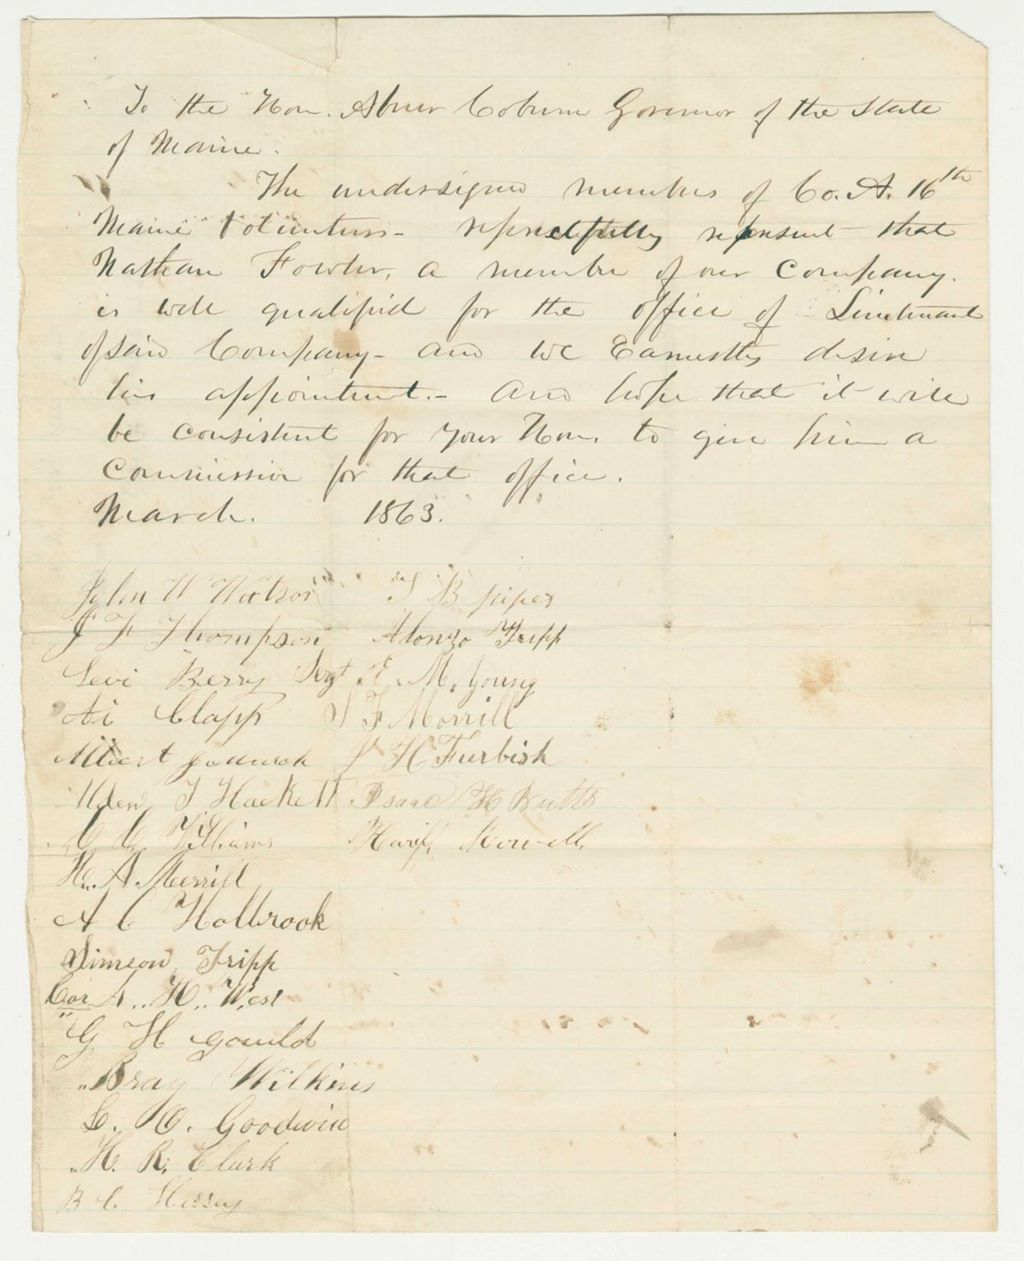 To the Hon. Abner Coburn Governor of the State
of Maine.
The undersigned members of Co. A. 16th
Maine Volunteers - respectfully represent that
Nathan Fowler, a member of our Company.
is well qualified for the office of Lieutenant
of said Company - and we Earnestly desire
his appointment. - And hope that it will
be consistent for your Hon. to give him a
Commission for that office.
March. 1863.
John W Watson S B piper
J F Thompson Alonzo Tripp
Levi Berry Sergt E. M. Young
Ai Clapp S F Morrill
Albert J H Furbish
T Hackett Isaac H Butts
C C Williams
H. A. Merrill
A C Holbrook
Simeon Tripp
Cor A.. H.. West
" G H gould
" Bray Wilkins
L. O. Goodwin
" H. R. Clark
B C Hussey